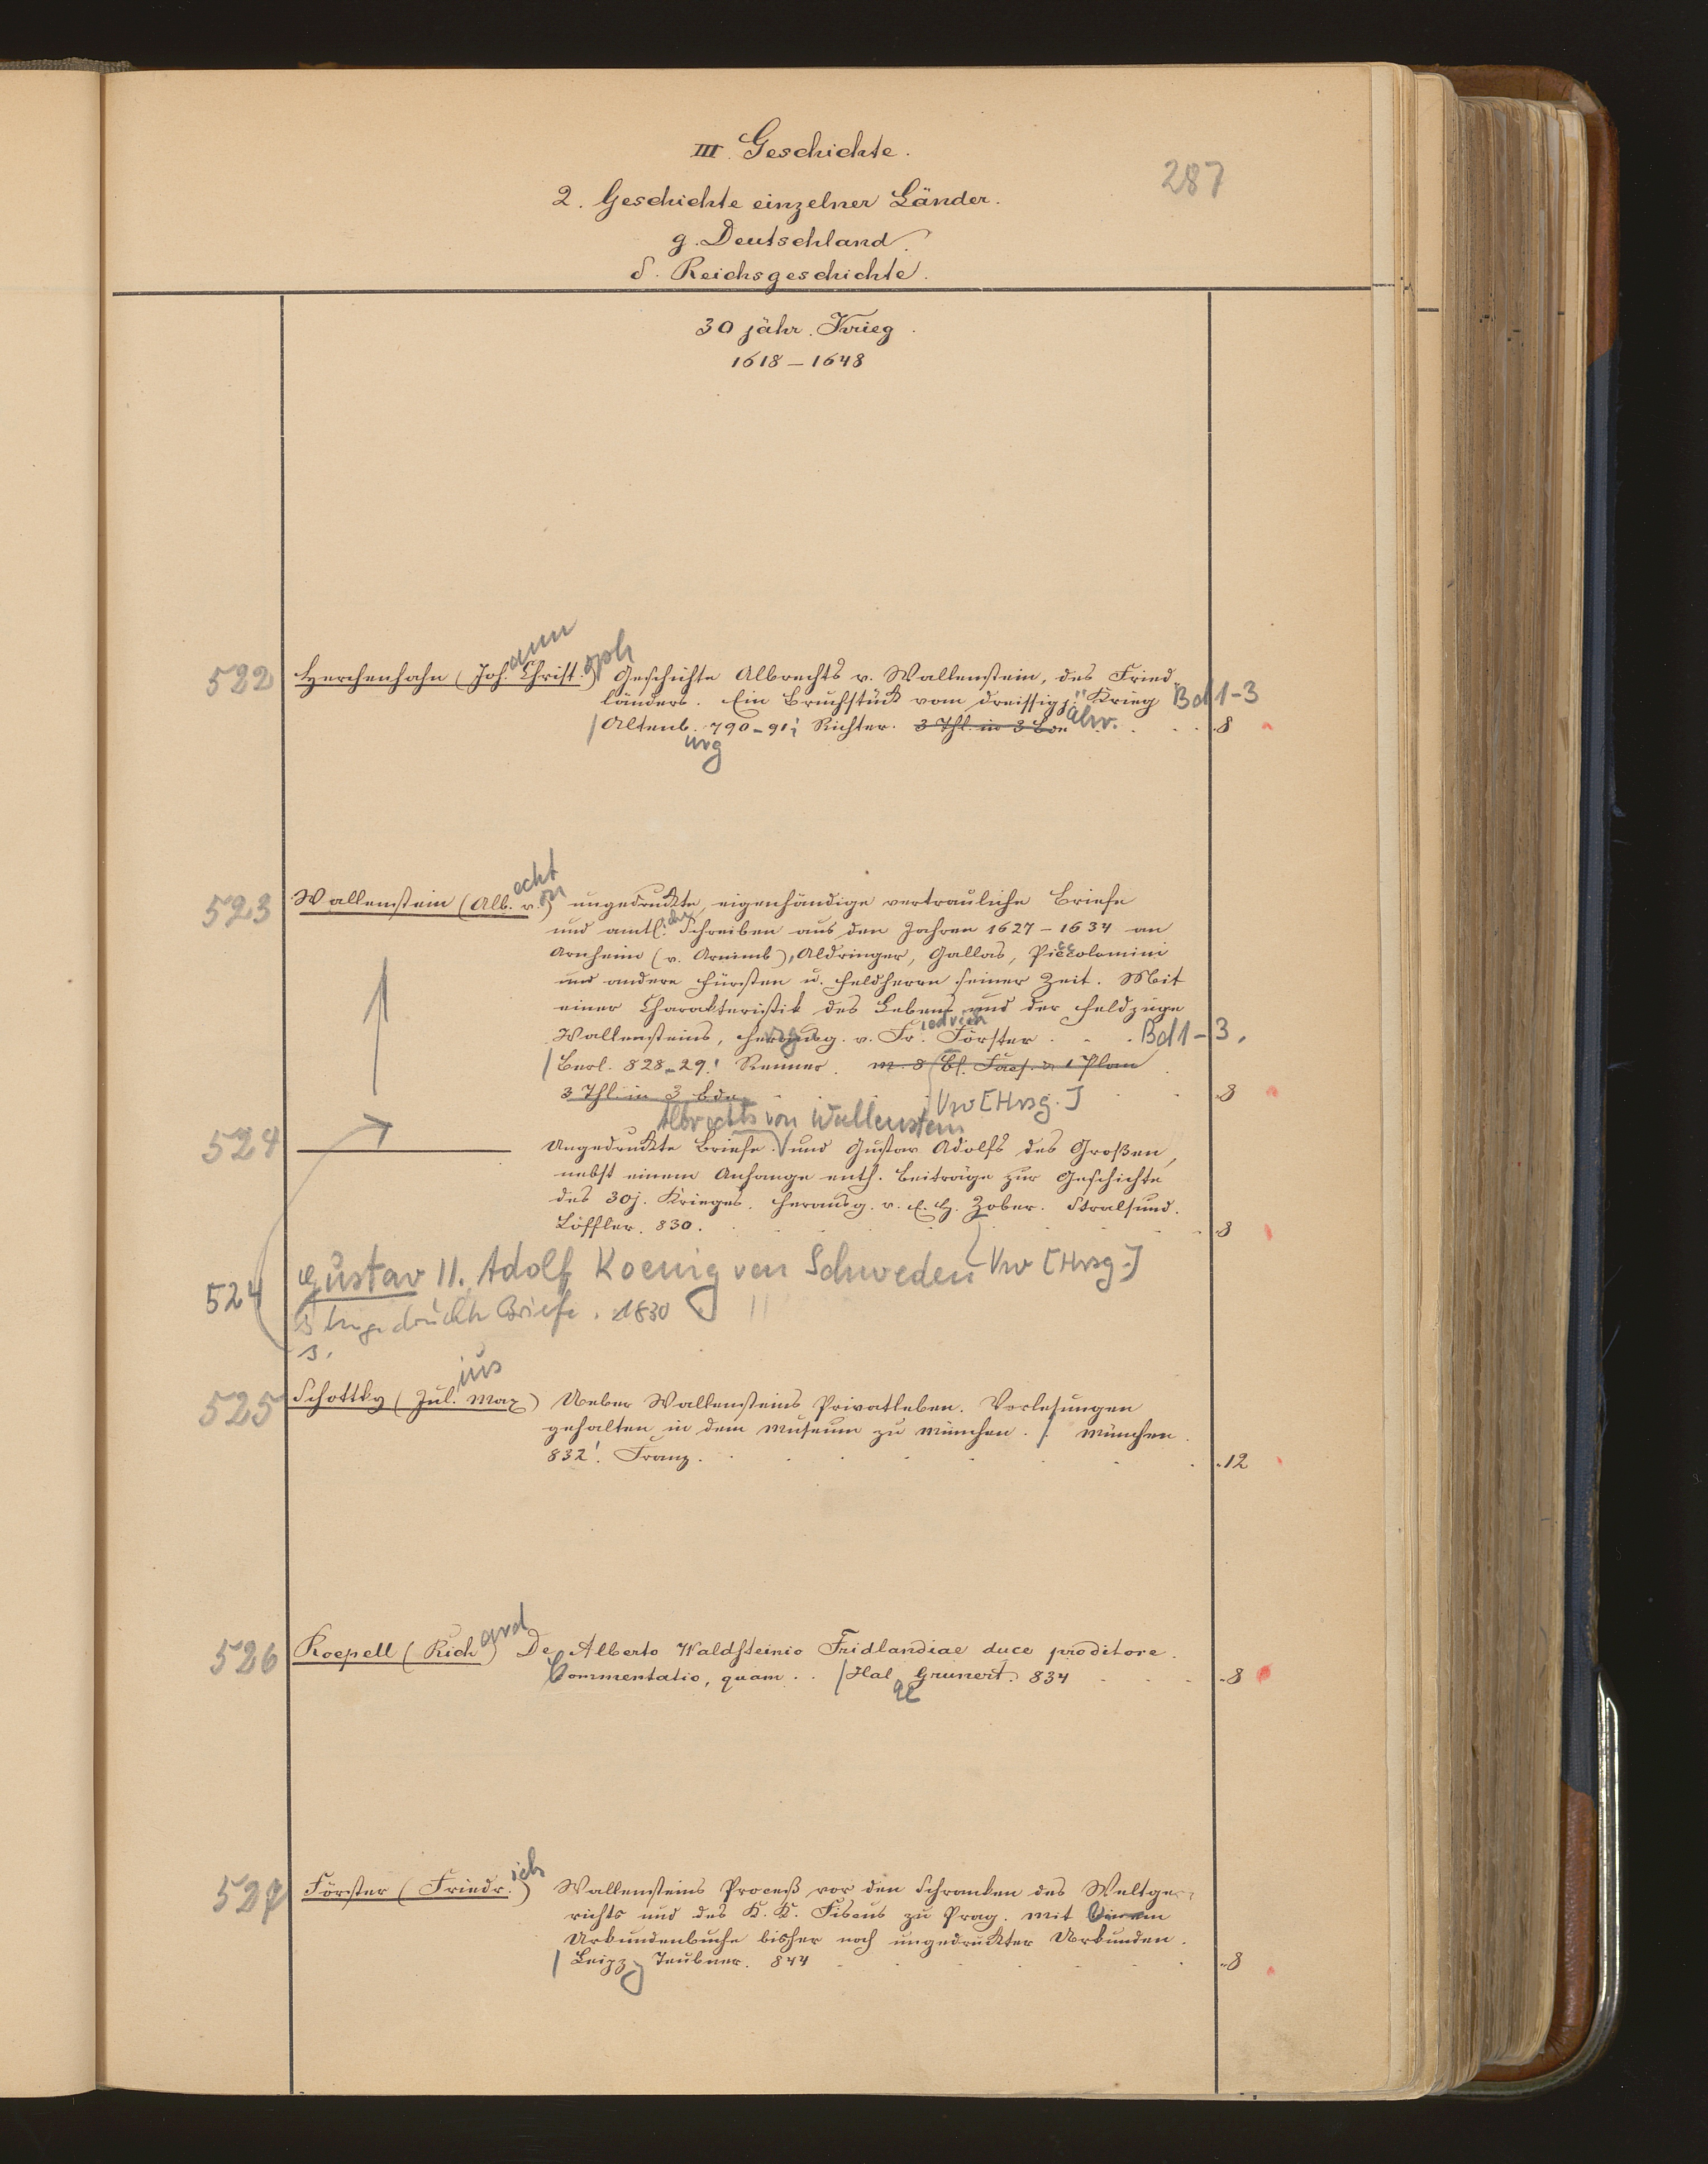 III. Geschichte.
287
2. Geschichte einzelner Länder.
g. Deutschland.
δ. Reichsgeschichte.
30 jähr. Krieg.
1618 – 1648
522 Herchenhahn (Joh.ann Christ.oph) Geschichte Albrechts v. Wallenstein, des Fried-
länders. Ein Bruchstück vom dreissigj.ähr. Krieg Bd 1-3
/ Altenb.urg 790-91. Richter. 3 Thl. in 3 Bdn . . . 8
523 Wallenstein (Alb.recht v.on) ungedruckte, eigenhändige vertrauliche Briefe
und amtl.iche Schreiben aus den Jahren 1627 – 1634 an
Arnheim (v. Arnimb), Aldringer, Gallas, Piccolomini
und andere Fürsten u. Feldherrn seiner Zeit. Mit
einer Charakteristik des Lebens und der Feldzüge
Wallensteins, herausg. v. Fr.iedrich Förster . . . Bd 1-3.
/ Berl. 828-29. Reimer. m. 8 Bl. Facs. u 1 Plan
3 Thl. in 3 Bdn. Vw [Hrsg.] . . 8
Albrechts von Wallenstein
524 ——— Ungedruckte Briefe und Gustav Adolfs des Großen,
nebst einem Anhange enth. Beiträge zur Geschichte
des 30j. Krieges. herausg. v. E. H. Zober. Stralsund.
Löffler. 830. . . . 8
524 Gustav II. Adolf Koenig von Schweden Vw [Hrsg.]
s Ungedruckte Briefe. 1830
s.
525 Schottky (Jul.ius Max) Ueber Wallensteins Privatleben. Vorlesungen
gehalten in dem Museum zu München. / München.
832. Franz. . . . 12
526 Roepell (Rich.ard) De Alberto Waldsteinio Fridlandiae duce proditore.
Commentatio, quam . . / Hal.ae Grunert. 834 . . . 8
527 Förster (Friedr.ich) Wallensteins Proceß vor den Schranken des Weltge-
richts und des K. K. Fiscus zu Prag. Mit einem
Urkundenbuche bisher noch ungedruckter Urkunden.
/ Leipz.g Teubner. 844 . . . 8